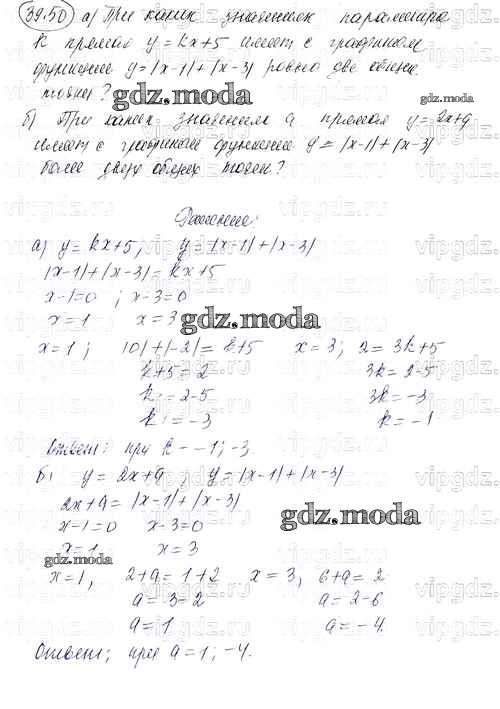 39.50 а) При каких значениях параметра
k прямая y = kx+5 имеет с графиком
функции y = |x-1| + |x-3| ровно две общие
точки?
gdz.moda
gdz.moda
б) При каких значениях a прямая y = 2x+a
имеет с графиком функции y = |x-1| + |x-3|
более двух общих точек?
Решение:
а) y = kx+5, y = |x-1| + |x-3|
|x-1| + |x-3| = kx+5
x-1=0 ; x-3=0
x=1 x=3
gdz.moda
x=1; |0| + |-2| = k+5 x=3; 2 = 3k+5
k+5=2 3k=2-5
k=2-5 3k=-3
k=-3 k=-1
Ответ: при k = -1; -3.
б) y = 2x+a, y = |x-1| + |x-3|
2x+a = |x-1| + |x-3|
x-1=0 x-3=0
gdz.moda
x=1 x=3
gdz.moda
x=1, 2+a = 1+2 x=3, 6+a = 2
a = 3-2 a = 2-6
a = 1 a = -4.
Ответ: при a = 1; -4.
vipgdz.ru